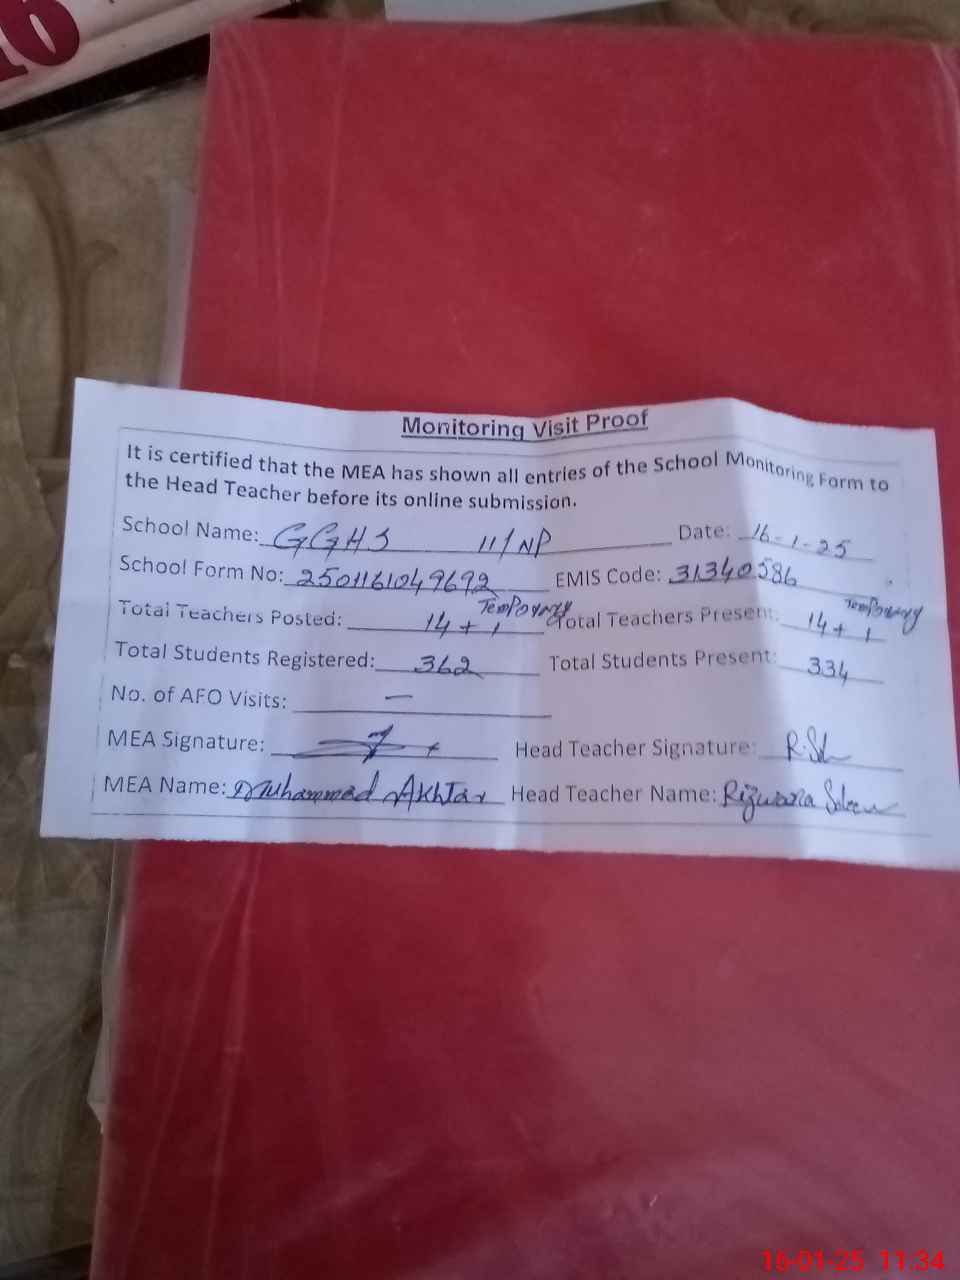 Monitoring Visit Proof
It is certified that the MEA has shown all entries of the School Monitoring Form to
the Head Teacher before its online submission.
School Name: GGHS 11/NP Date: 16-1-25
School Form No: 2501161049692 EMIS Code: 31340586
Total Teachers Posted: 14 + 1 Temporary Total Teachers Present: 14 + 1 Temporary
Total Students Registered: 362 Total Students Present: 334
No. of AFO Visits: —
MEA Signature: Head Teacher Signature:
MEA Name: Muhammad Akhtar Head Teacher Name: Rizwana
16-01-25 11:34